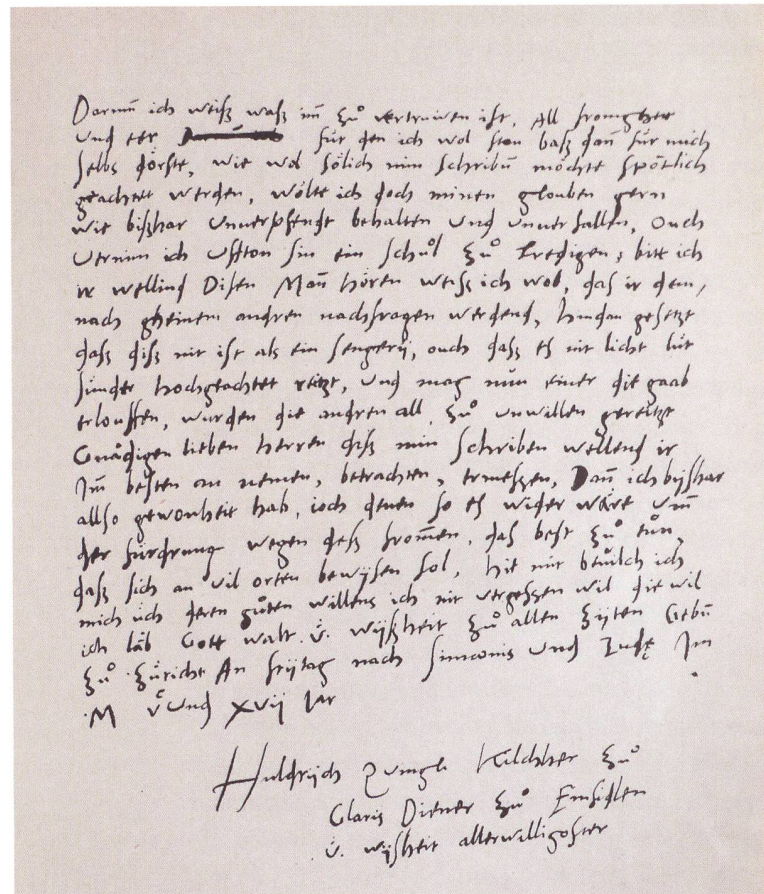 Darumb ich weiß waß im zů vertruwen ist, All fromgkeit
und eer für den ich wol ston baß dan̄ für mich
selbs dörste, wie wol sölich min schribn̄ möchte spötlich
geachtet werden, wölte ich doch minen glouben gern
wie bißhar unverpfendt behalten und unverfallen, Ouch
vernim ich Uffton sin ein schůl zů predigen, bitt ich
ir wellind Disen Man̄ hören weiß ich wol, das ir dem,
nach gheinem andren nachfragen werdend, hindan gesetzt
daß diß nit ist als ein sengery, ouch daß es nit licht lüt
sunder hochgeachtet reitzt, Und mag nun einer die gaab
erlouffen, wurden die andren all, zů unwillen gereitzt
Gnädigen lieben herren diß min schriben wellend ir
Im besten an nemen, betrachten, ermeßen, Dan̄ ich byßhar
allso gewonheit hab, ioch denen so es wider wäre um̄
der fürdrung wegen deß from̄en, das best zů tůn,
daß sich an vil orten bewysen sol, hie mit bevilch ich
mich üch deren gůten willens ich nit vergeßen wil die wil
ich läb Gott walt ü. wyßheit zů allen zyten Gebn̄
zů Zürich An frytag nach simonis und Judę Im
M vͨ Und xvij Jar
Huldrych Zwingli kilchher zů
Glaris Diener zů Einsidlen
ü. wyßheit allerwilligoster